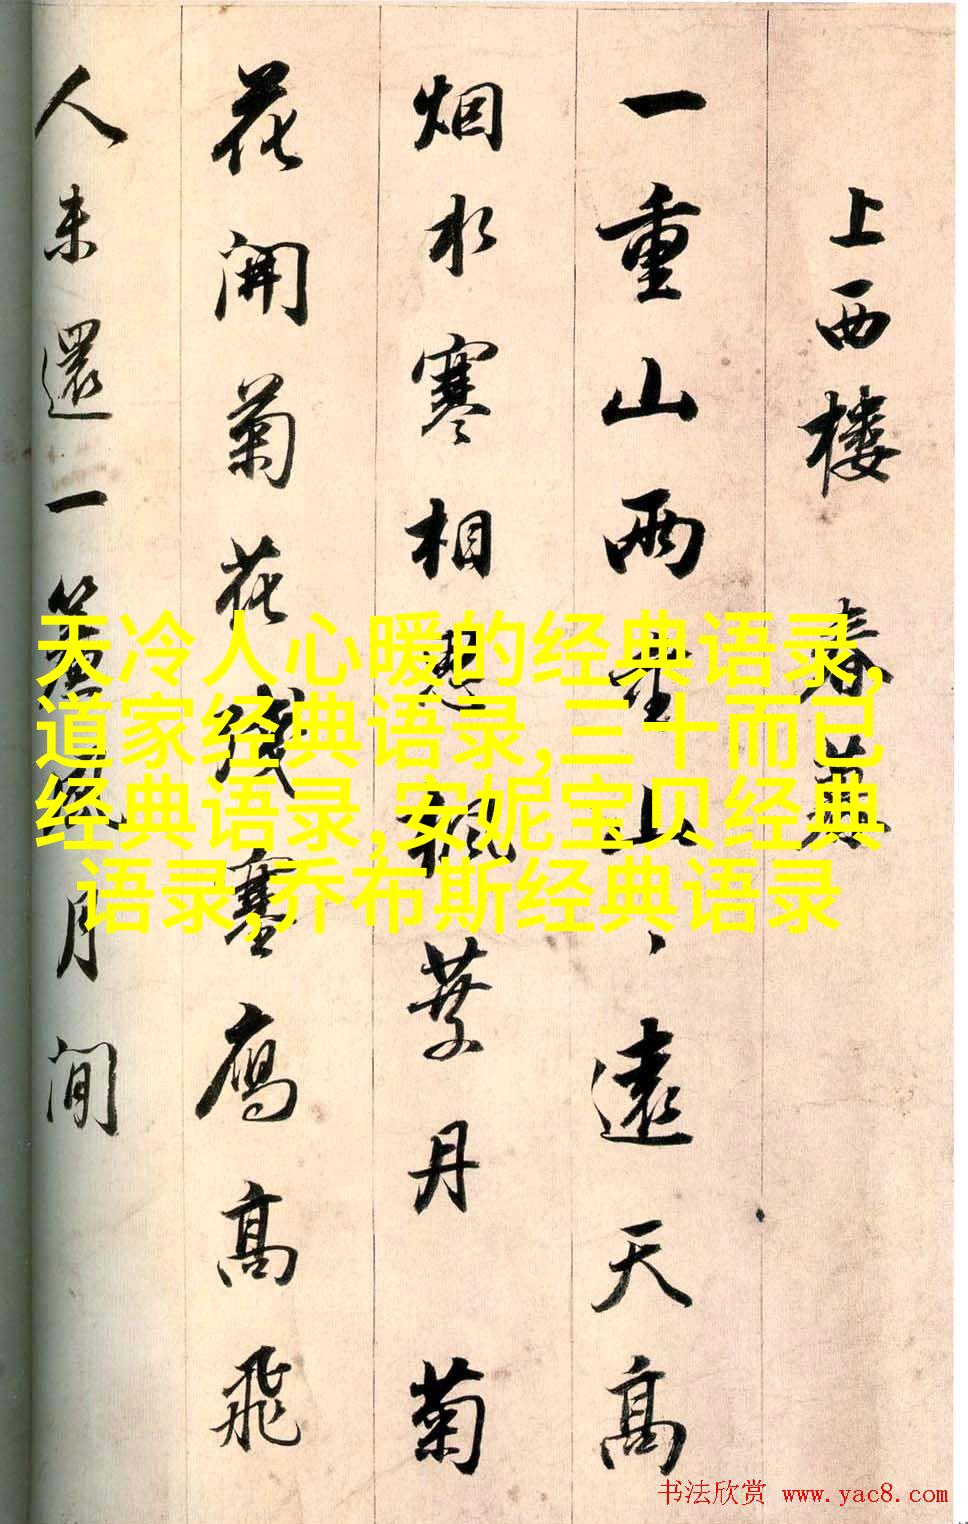 上西楼 春
一重山兩重山、遠天高
烟水寒相思楓葉丹 菊
花開菊花殘塞鴈高飛
人未還一簾風月閒
天冷人心暖的经典语录,
道家经典语录,三十而已
经典语录,安妮宝贝经典
语录,乔布斯经典语录
书法欣赏 www.yac8.com